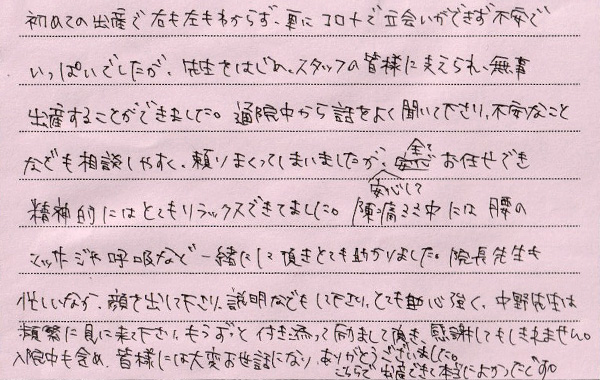 初めての出産で右も左もわからず、更にコロナで立会いができず不安で
いっぱいでしたが、先生をはじめ、スタッフの皆様に支えられ、無事
出産することができました。通院中から話をよく聞いて下さり、不安なこと
なども相談しやすく、頼りまくってしまいましたが、全てお任せでき
安心して
精神的にはとてもリラックスできてました。陣痛中には腰の
マッサージや呼吸など一緒にして頂きとても助かりました。院長先生も
忙しいなか、顔を出して下さり、説明などもして下さり、とても心強く、中野先生は
頻繁に見に来て下さり、もうずっと付き添って励まして頂き、感謝してもしきれません。
入院中も含め、皆様には大変お世話になり、ありがとうございました。
こちらで出産できて本当によかったです。